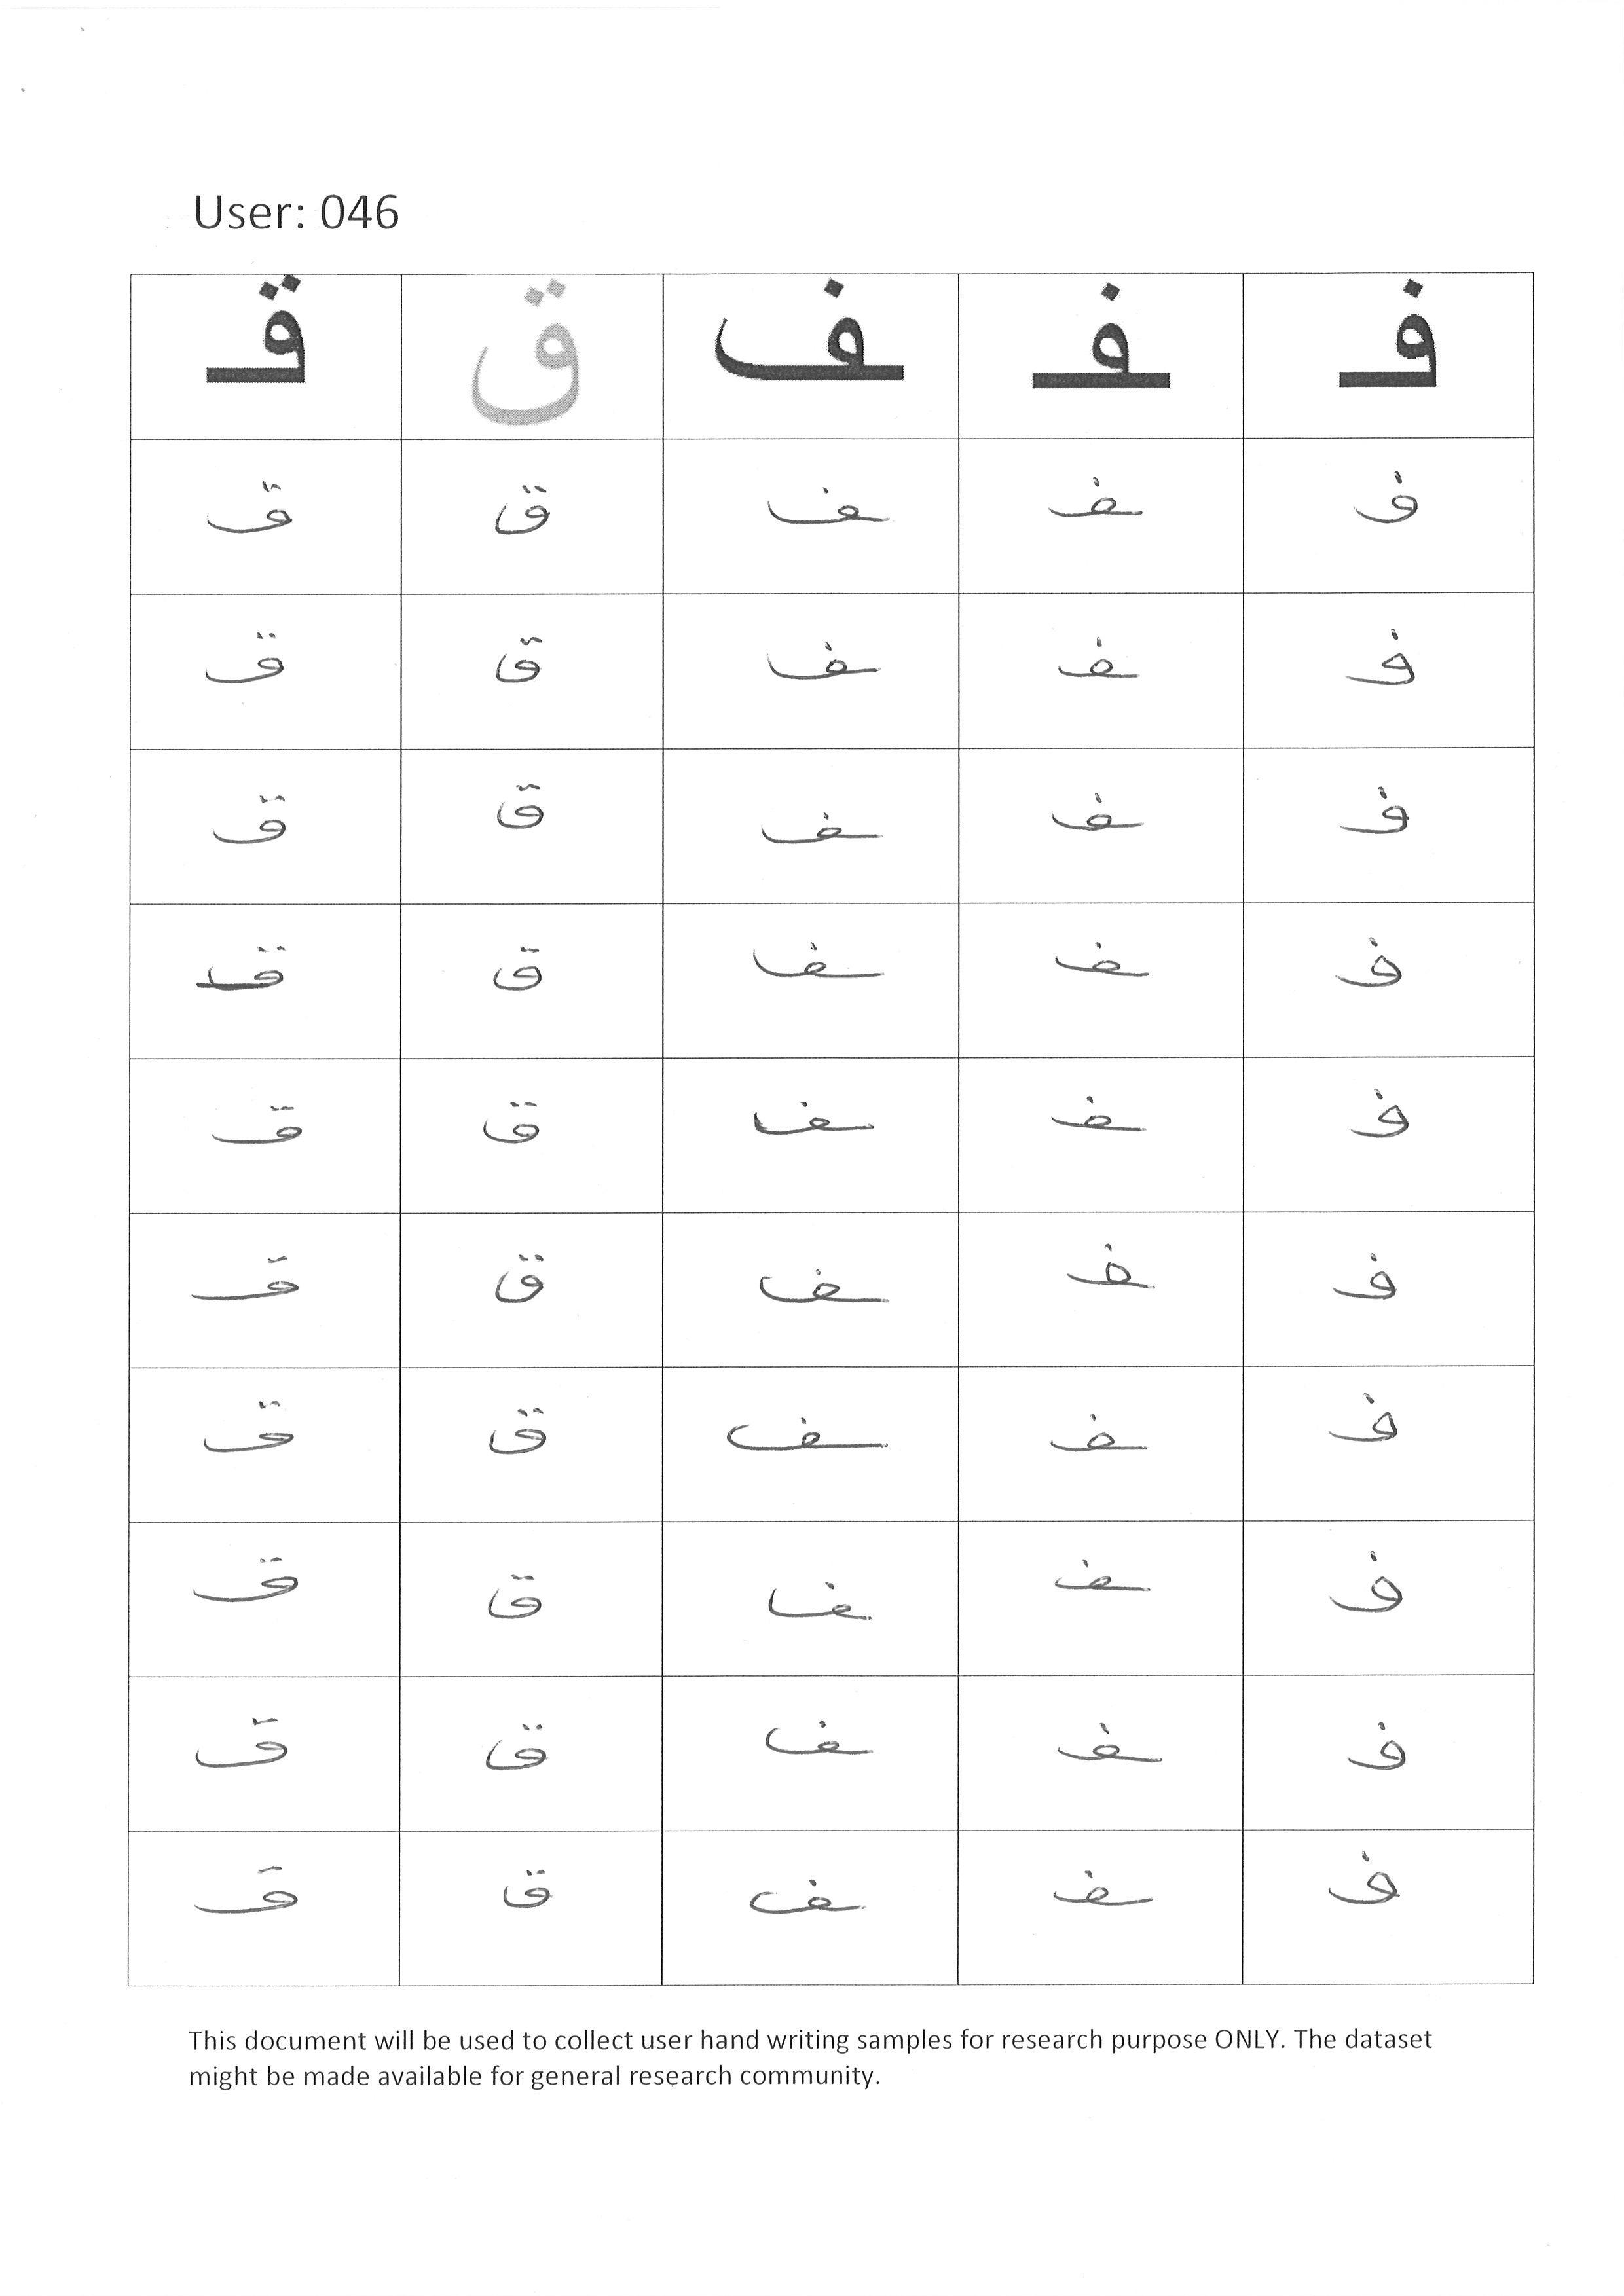 User: 046
قـ ق ـف ـفـ فـ
قـ ق ـف ـفـ فـ
قـ ق ـف ـفـ فـ
قـ ق ـف ـفـ فـ
قـ ق ـف ـفـ فـ
قـ ق ـف ـفـ فـ
قـ ق ـف ـفـ فـ
قـ ق ـف ـفـ فـ
قـ ق ـف ـفـ فـ
قـ ق ـف ـفـ فـ
قـ ق ـف ـفـ فـ
This document will be used to collect user hand writing samples for research purpose ONLY. The dataset
might be made available for general research community.